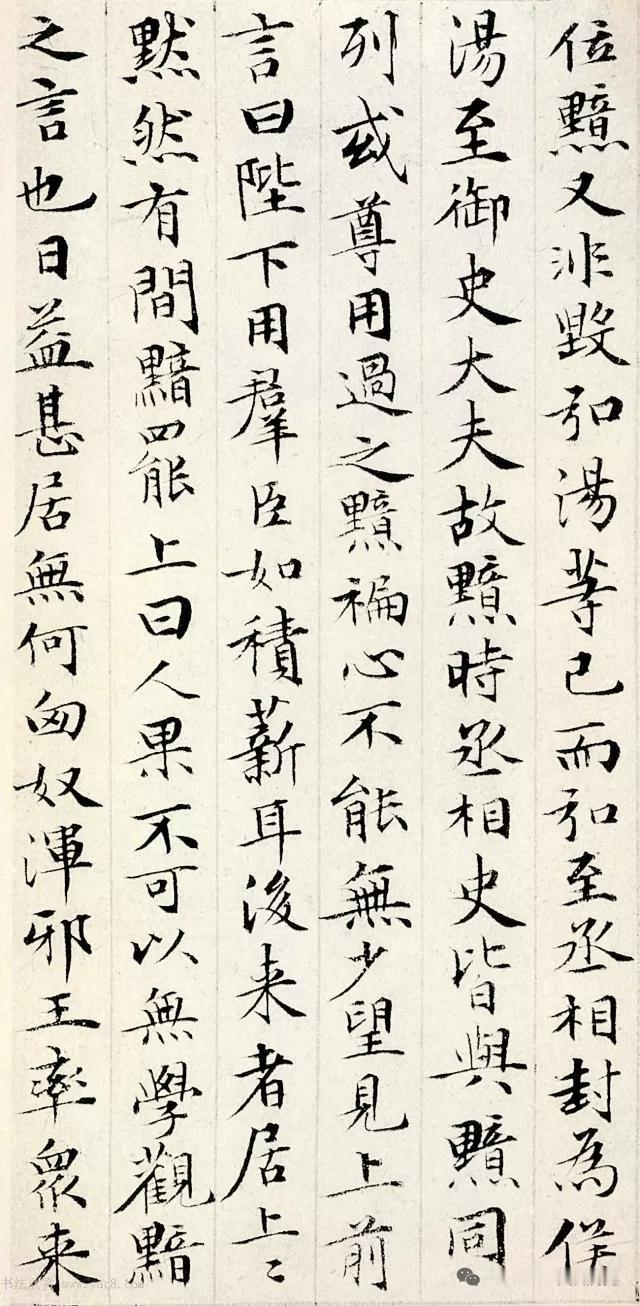 位黯又非毀弘湯等已而弘至丞相封為侯
湯至御史大夫故黯時丞相史皆與黯同
列或尊用過之黯褊心不能無少望見上前
言曰陛下用羣臣如積薪耳後来者居上〻
黙然有間黯罷上曰人果不可以無學觀黯
之言也日益甚居無何匈奴渾邪王率眾来